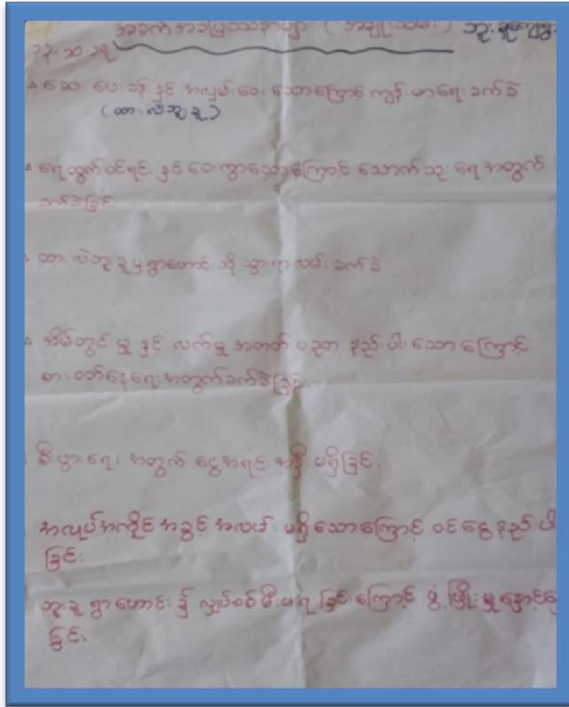 အခက်အခဲပြဿနာများ ( အမျိုးသမီး )
ဆေး ပေး ခန်း နှင့် အလှမ်း ဝေး သောကြောင့် ကျန်း မာရေး ခက်ခဲ
ရေထွက် ဝင်ရင်း နှင့် ဝေး ကွာသောကြောင့် သောက်သုံး ရေ အတွက်
ခက်ခဲခြင်း
ထား လဲဘူ ခူမှ ရွာဟောင်း သို့ သွား ရာ လမ်း ခက်ခဲ
အိမ်တွင်း မှု နှင့် လက်မှု အတတ် ပညာ နည်း ပါး သောကြောင့်
စား ဝတ်နေရေး အတွက်ခက်ခဲခြင်း
စီးပွားရေး အတွက် ငွေအရင်း အနှီး မရှိခြင်း
အလုပ်အကိုင် အခွင့် အလမ်း မရှိသောကြောင့် ဝင်ငွေနည်း ပါး
ခြင်း
ဘူး ခူ ရွာ ဟောင်း ၌ လျှပ်စစ်မီး မရ ခြင်း ကြောင့် ဖွံ့ ဖြိုး မှု နှောင့်နှေး
ခြင်း